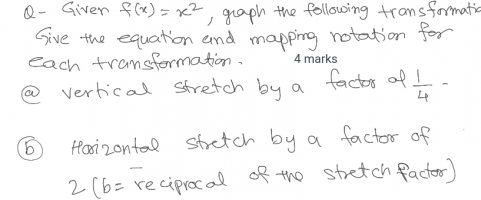 Q- Given f(x) = x², graph the following transformatic
Give the equation and mapping notation for
each transformation. 4 marks
ⓐ vertical stretch by a factor of 1/4.
ⓑ Horizontal stretch by a factor of
2 (b = reciprocal of the stretch factor)